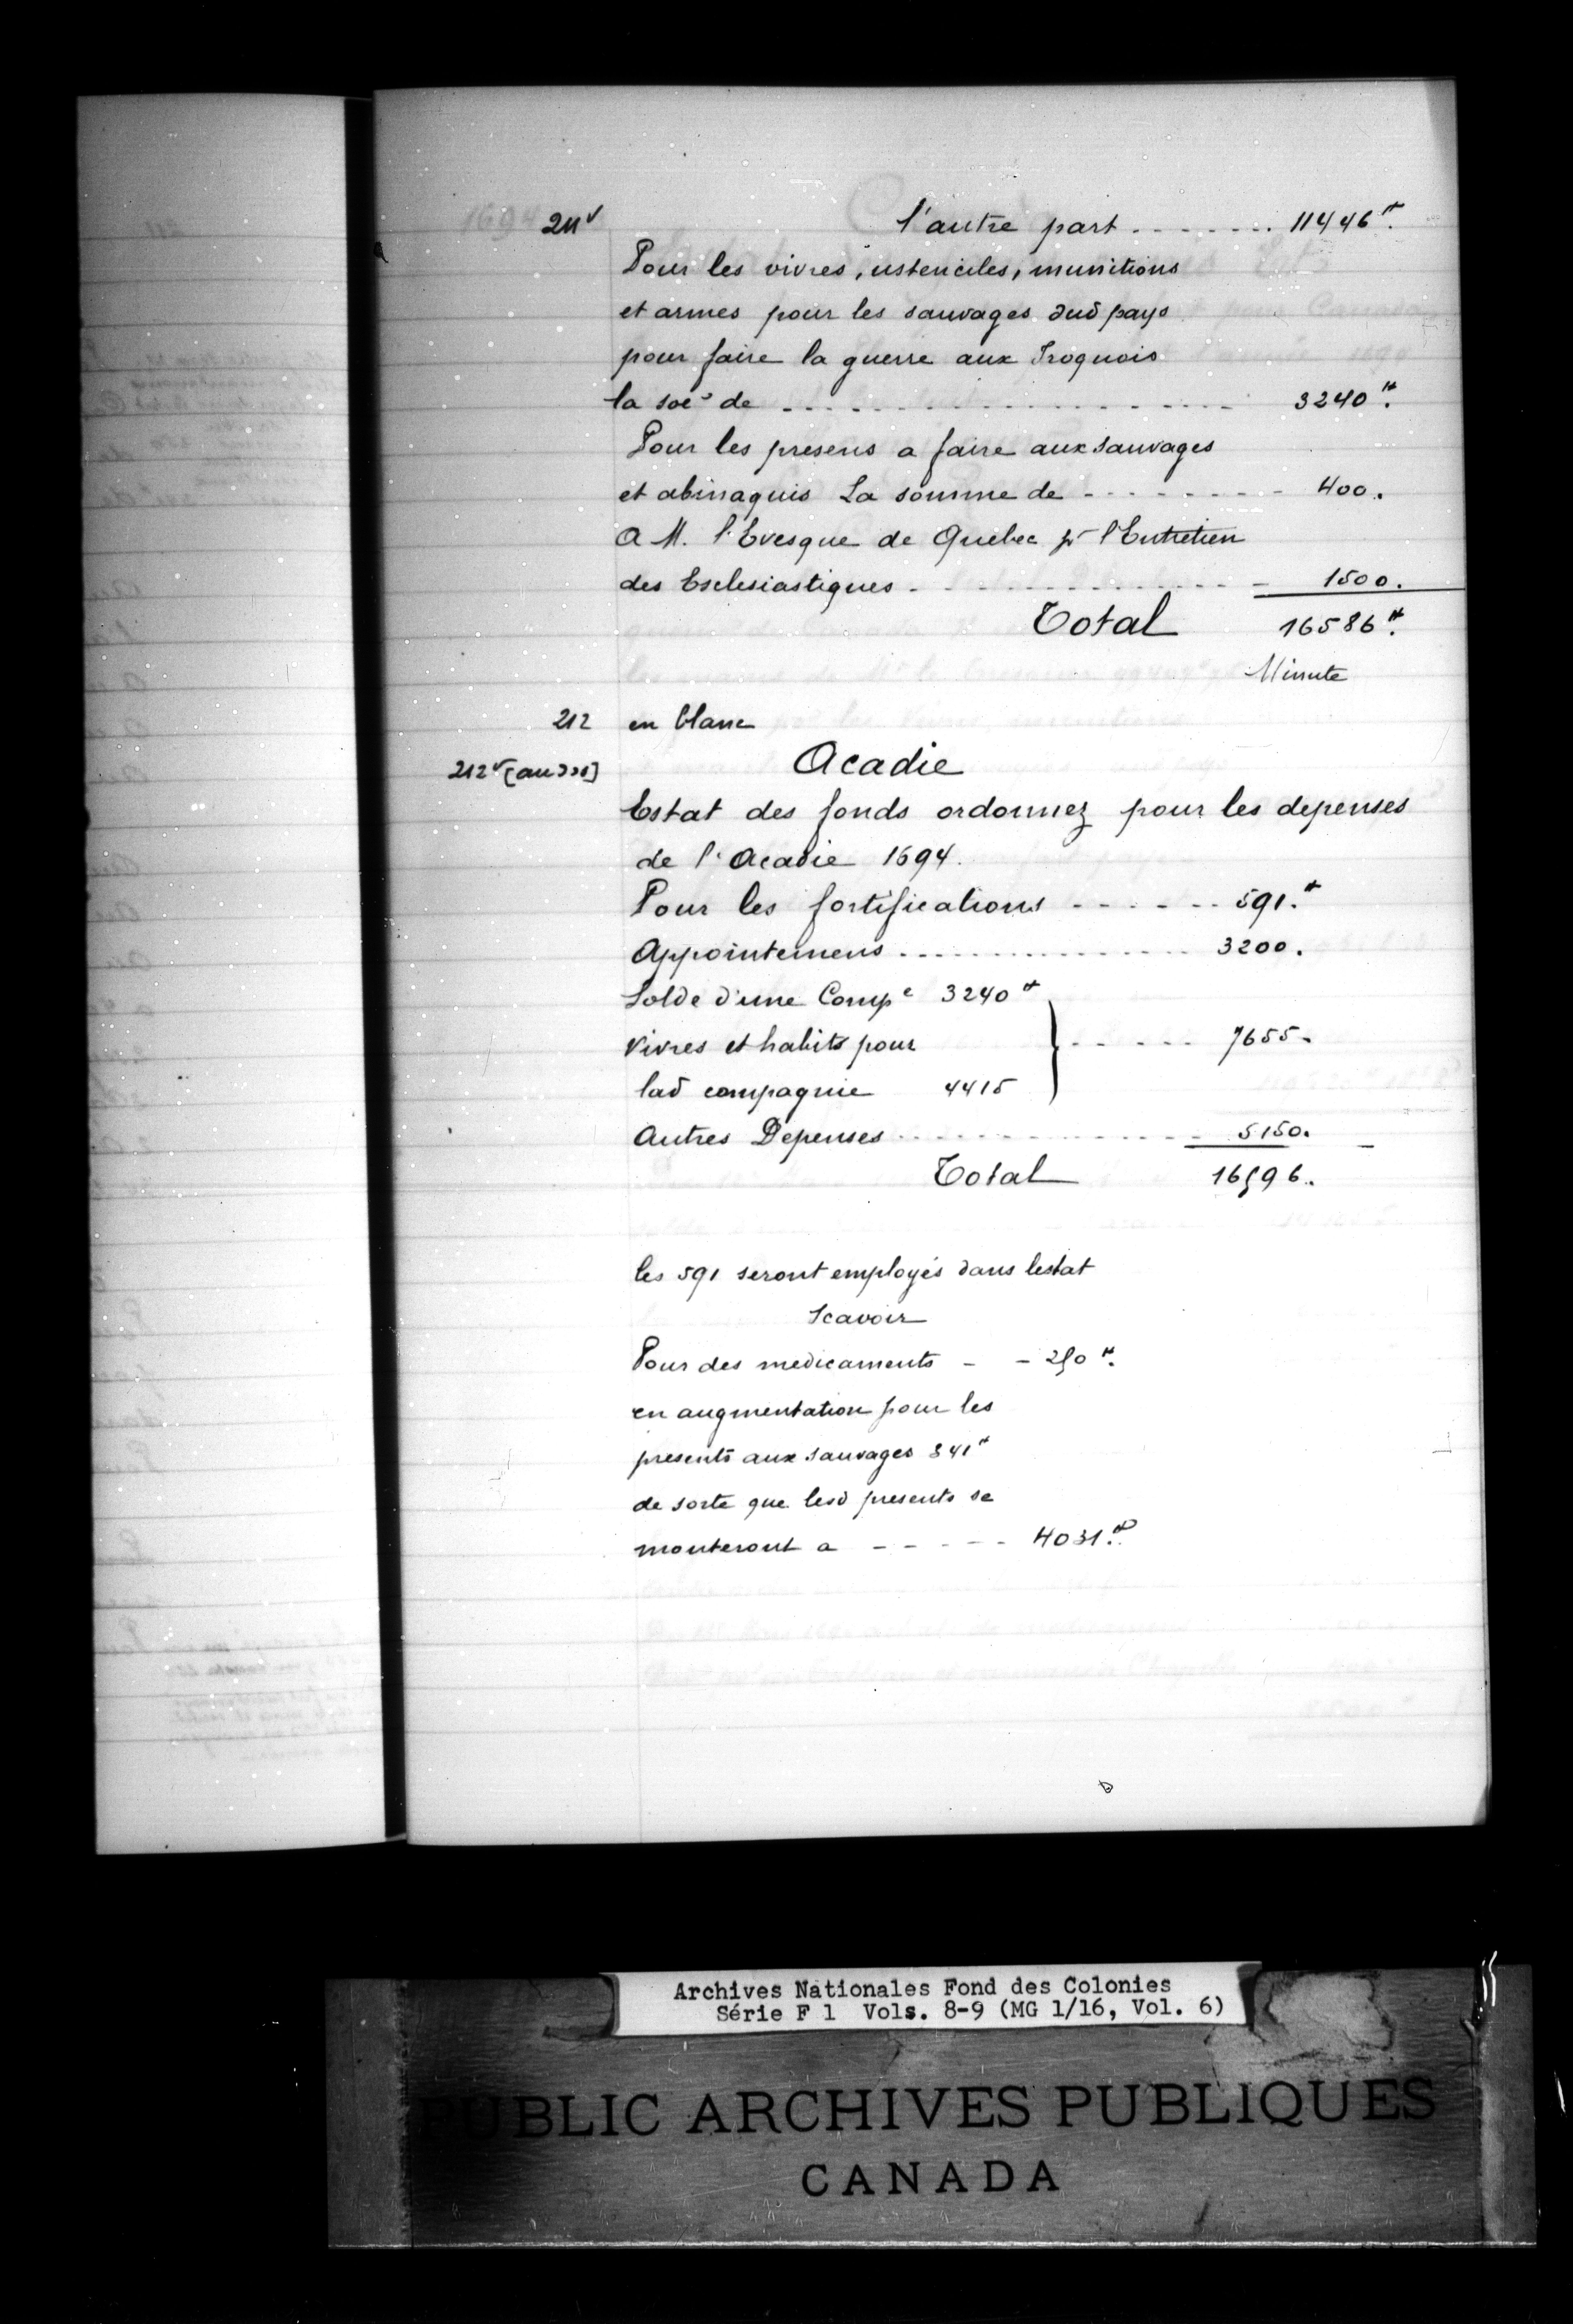 211v l'autre part ........ 11446tt.
Pour les vivres, ustenciles, munitions
et armes pour les sauvages dud pays
pour faire la guerre aux Iroquois
la soe de ........ 3240tt.
Pour les presens a faire aux sauvages
et abinaquis La somme de ........ 400.
A M. l'Evesque de Quebec pr l'Entretien
des Esclesiastiques ........ 1500.
Total 16586tt.
Minute
212 en blanc
212v [au dos] Acadie
Estat des fonds ordonnez pour les depenses
de l'Acadie 1694.
Pour les fortifications ------ 591.tt
Appointemens ........ 3200.
Solde d'une Compe 3240tt
vivres et habits pour } ----- 7655.
lad compagnie 4415
Autres Depenses ........ 5150.
Total 16596.
les 591 seront employés dans lestat
Scavoir
Pour des medicaments - - 250tt.
en augmentation pour les
presents aux sauvages 341tt
de sorte que lesd presents se
monteront a ----- 4031.tt
Archives Nationales Fond des Colonies
Série F 1 Vols. 8-9 (MG 1/16, Vol. 6)
PUBLIC ARCHIVES PUBLIQUES
CANADA